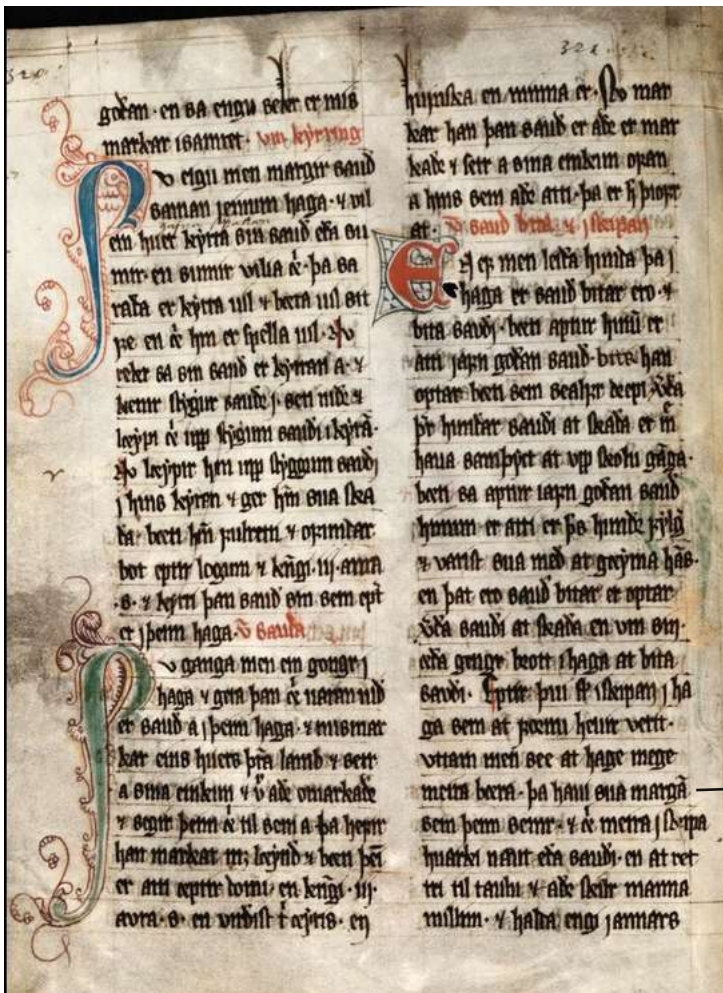 320
goðan. en sa engu seker er mis
markar isamret. vm kyrring
Nv eigu men margir saud
saman jeinum haga. ⁊ vil
ein huer kyrra sin saud eða su
mir. en sumir vilia ei. þa sa
raða er kyrra uil ⁊ betra uil sit
fe en ei hin er spella uil. Nv
reker sa sin saud er kyrran a. ⁊
kiemr skygur saude j. sett nidr ⁊
leypi ei upp skygum saudi i kyrra.
Nv leypir hin upp skyggum saudj
j hins kyrran ⁊ ger him sua ska
da. beeti him fulretti ⁊ ofundar
bot eptir logum ⁊ kngi. iij. aura
.s. ⁊ kyrri þan saud sin sem ept
er j þeim haga. v sauda
Nv ganga men ein gongu j
haga ⁊ gera þan ei uaran uid
er saud a j þeim haga. ⁊ mismar
kar eins huers þra lamb ⁊ setr
a sina einkun ⁊ ade omarkade
⁊ segir þeim ei til sem a þa hefir
han markat leynd ⁊ beeti þei
er atti eptir domi. en kngi. iij.
avra. s. en en
321
huinska en minna er. Nv mar
kar han þan saud er ade er mar
kade ⁊ setr a sina einkun ofan
a hins sem ade atti. þa er þiofr
at. v saud bita. ⁊ j skipan
En ef men leida hunda þa j
haga er saud bitar ero. ⁊
bita savdj. beeti aptur hinu er
atti jafn godan saud. bita han
optar beeti sem sealfr drepi. eda
þr hundar saudi at skada er m
hava samþyct at vpp skolu ganga.
beeti sa aptur iafn godan saud
hinum er atti er þs hunde fylg
⁊ varist sua med at geyma has.
en þat ero saud bitar er optar
eda saudi at skada en vm sin.
eda gengr brott i haga at bita
savdi. Eptir þui sk iskipan j ha
ga sem at forni hevir verit.
vttam men see at hage mege
meira beera. þa havi sua marga
sem þeim semr. ⁊ ei meira j skipa
huarki naut eda saudi. en at ret
tri tiltaulu ⁊ ade skilr manna
millum. ⁊ halda engi jannars